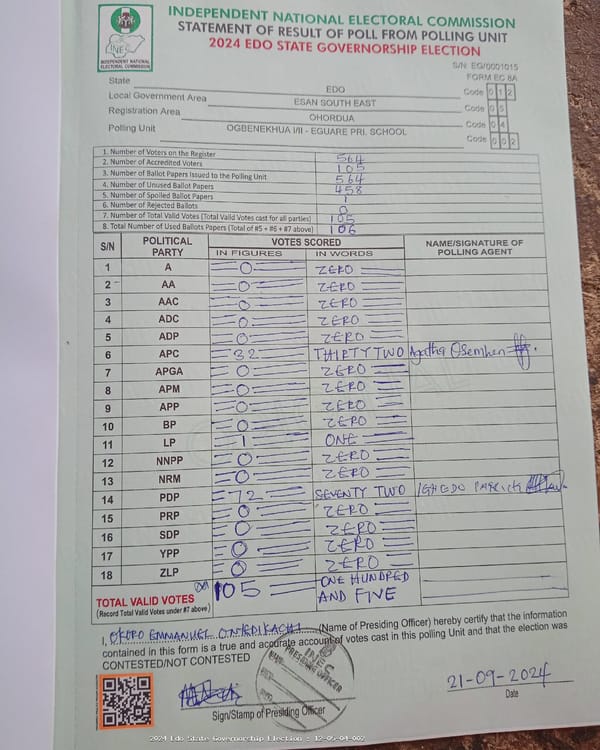 INDEPENDENT NATIONAL ELECTORAL COMMISSION
STATEMENT OF RESULT OF POLL FROM POLLING UNIT
2024 EDO STATE GOVERNORSHIP ELECTION
INEC
INDEPENDENT NATIONAL ELECTORAL COMMISSION
S/N: EG/0001015
FORM EC 8A
State EDO Code 0 1 2
Local Government Area ESAN SOUTH EAST Code 0 5
Registration Area OHORDUA Code 0 4
Polling Unit OGBENEKHUA I/II - EGUARE PRI. SCHOOL Code 0 0 2
1. Number of Voters on the Register 564
2. Number of Accredited Voters 105
3. Number of Ballot Papers Issued to the Polling Unit 564
4. Number of Unused Ballot Papers 458
5. Number of Spoiled Ballot Papers 1
6. Number of Rejected Ballots 0
7. Number of Total Valid Votes (Total Valid Votes cast for all parties) 105
8. Total Number of Used Ballots Papers (Total of #5 + #6 + #7 above) 106
S/N POLITICAL PARTY VOTES SCORED NAME/SIGNATURE OF POLLING AGENT
IN FIGURES IN WORDS
1 A 0 ZERO
2 AA 0 ZERO
3 AAC 0 ZERO
4 ADC 0 ZERO
5 ADP 0 ZERO
6 APC 32 THIRTY TWO Agatha Osemhen
7 APGA 0 ZERO
8 APM 0 ZERO
9 APP 0 ZERO
10 BP 0 ZERO
11 LP 1 ONE
12 NNPP 0 ZERO
13 NRM 0 ZERO
14 PDP 72 SEVENTY TWO
15 PRP 0 ZERO
16 SDP 0 ZERO
17 YPP 0 ZERO
18 ZLP 0 ZERO
TOTAL VALID VOTES 105 ONE HUNDRED AND FIVE
(Record Total Valid Votes under #7 above)
I, OKORO EMMANUEL ONYEDIKACHI (Name of Presiding Officer) hereby certify that the information
contained in this form is a true and accurate account of votes cast in this polling Unit and that the election was
CONTESTED/NOT CONTESTED
INEC
PRESIDING OFFICER
21-09-2024
Sign/Stamp of Presiding Officer Date
2024 Edo State Governorship Election : 12-05-04-002